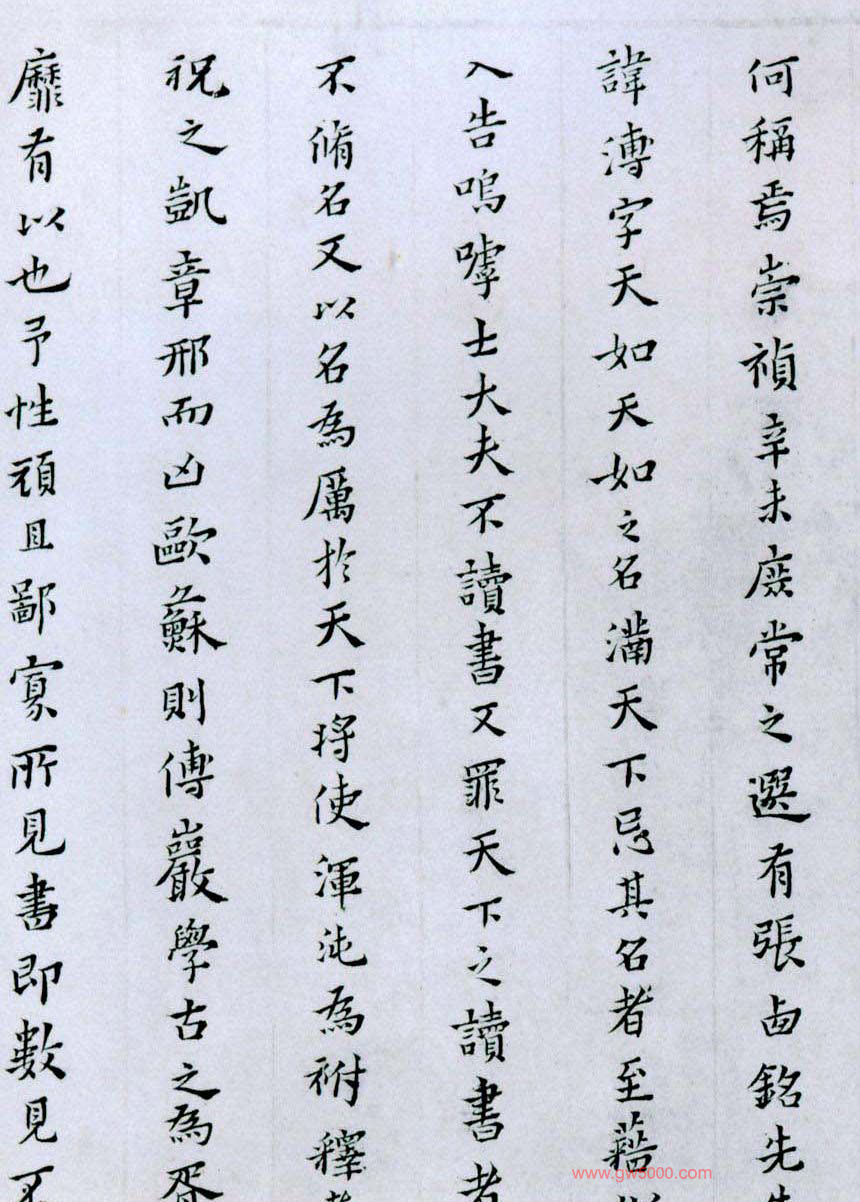 何稱焉崇禎辛未庶常之選有張西銘先
諱溥字天如天如之名滿天下忌其名者至藉
入告嗚嘑士大夫不讀書又罪天下之讀書者
不脩名又以名為厲於天下將使渾沌為祔釋
祝之凱章邢而凶歐蘇則傅巖學古之為胥
靡有以也予性頑且鄙寡所見書即數見不
www.gw5000.com